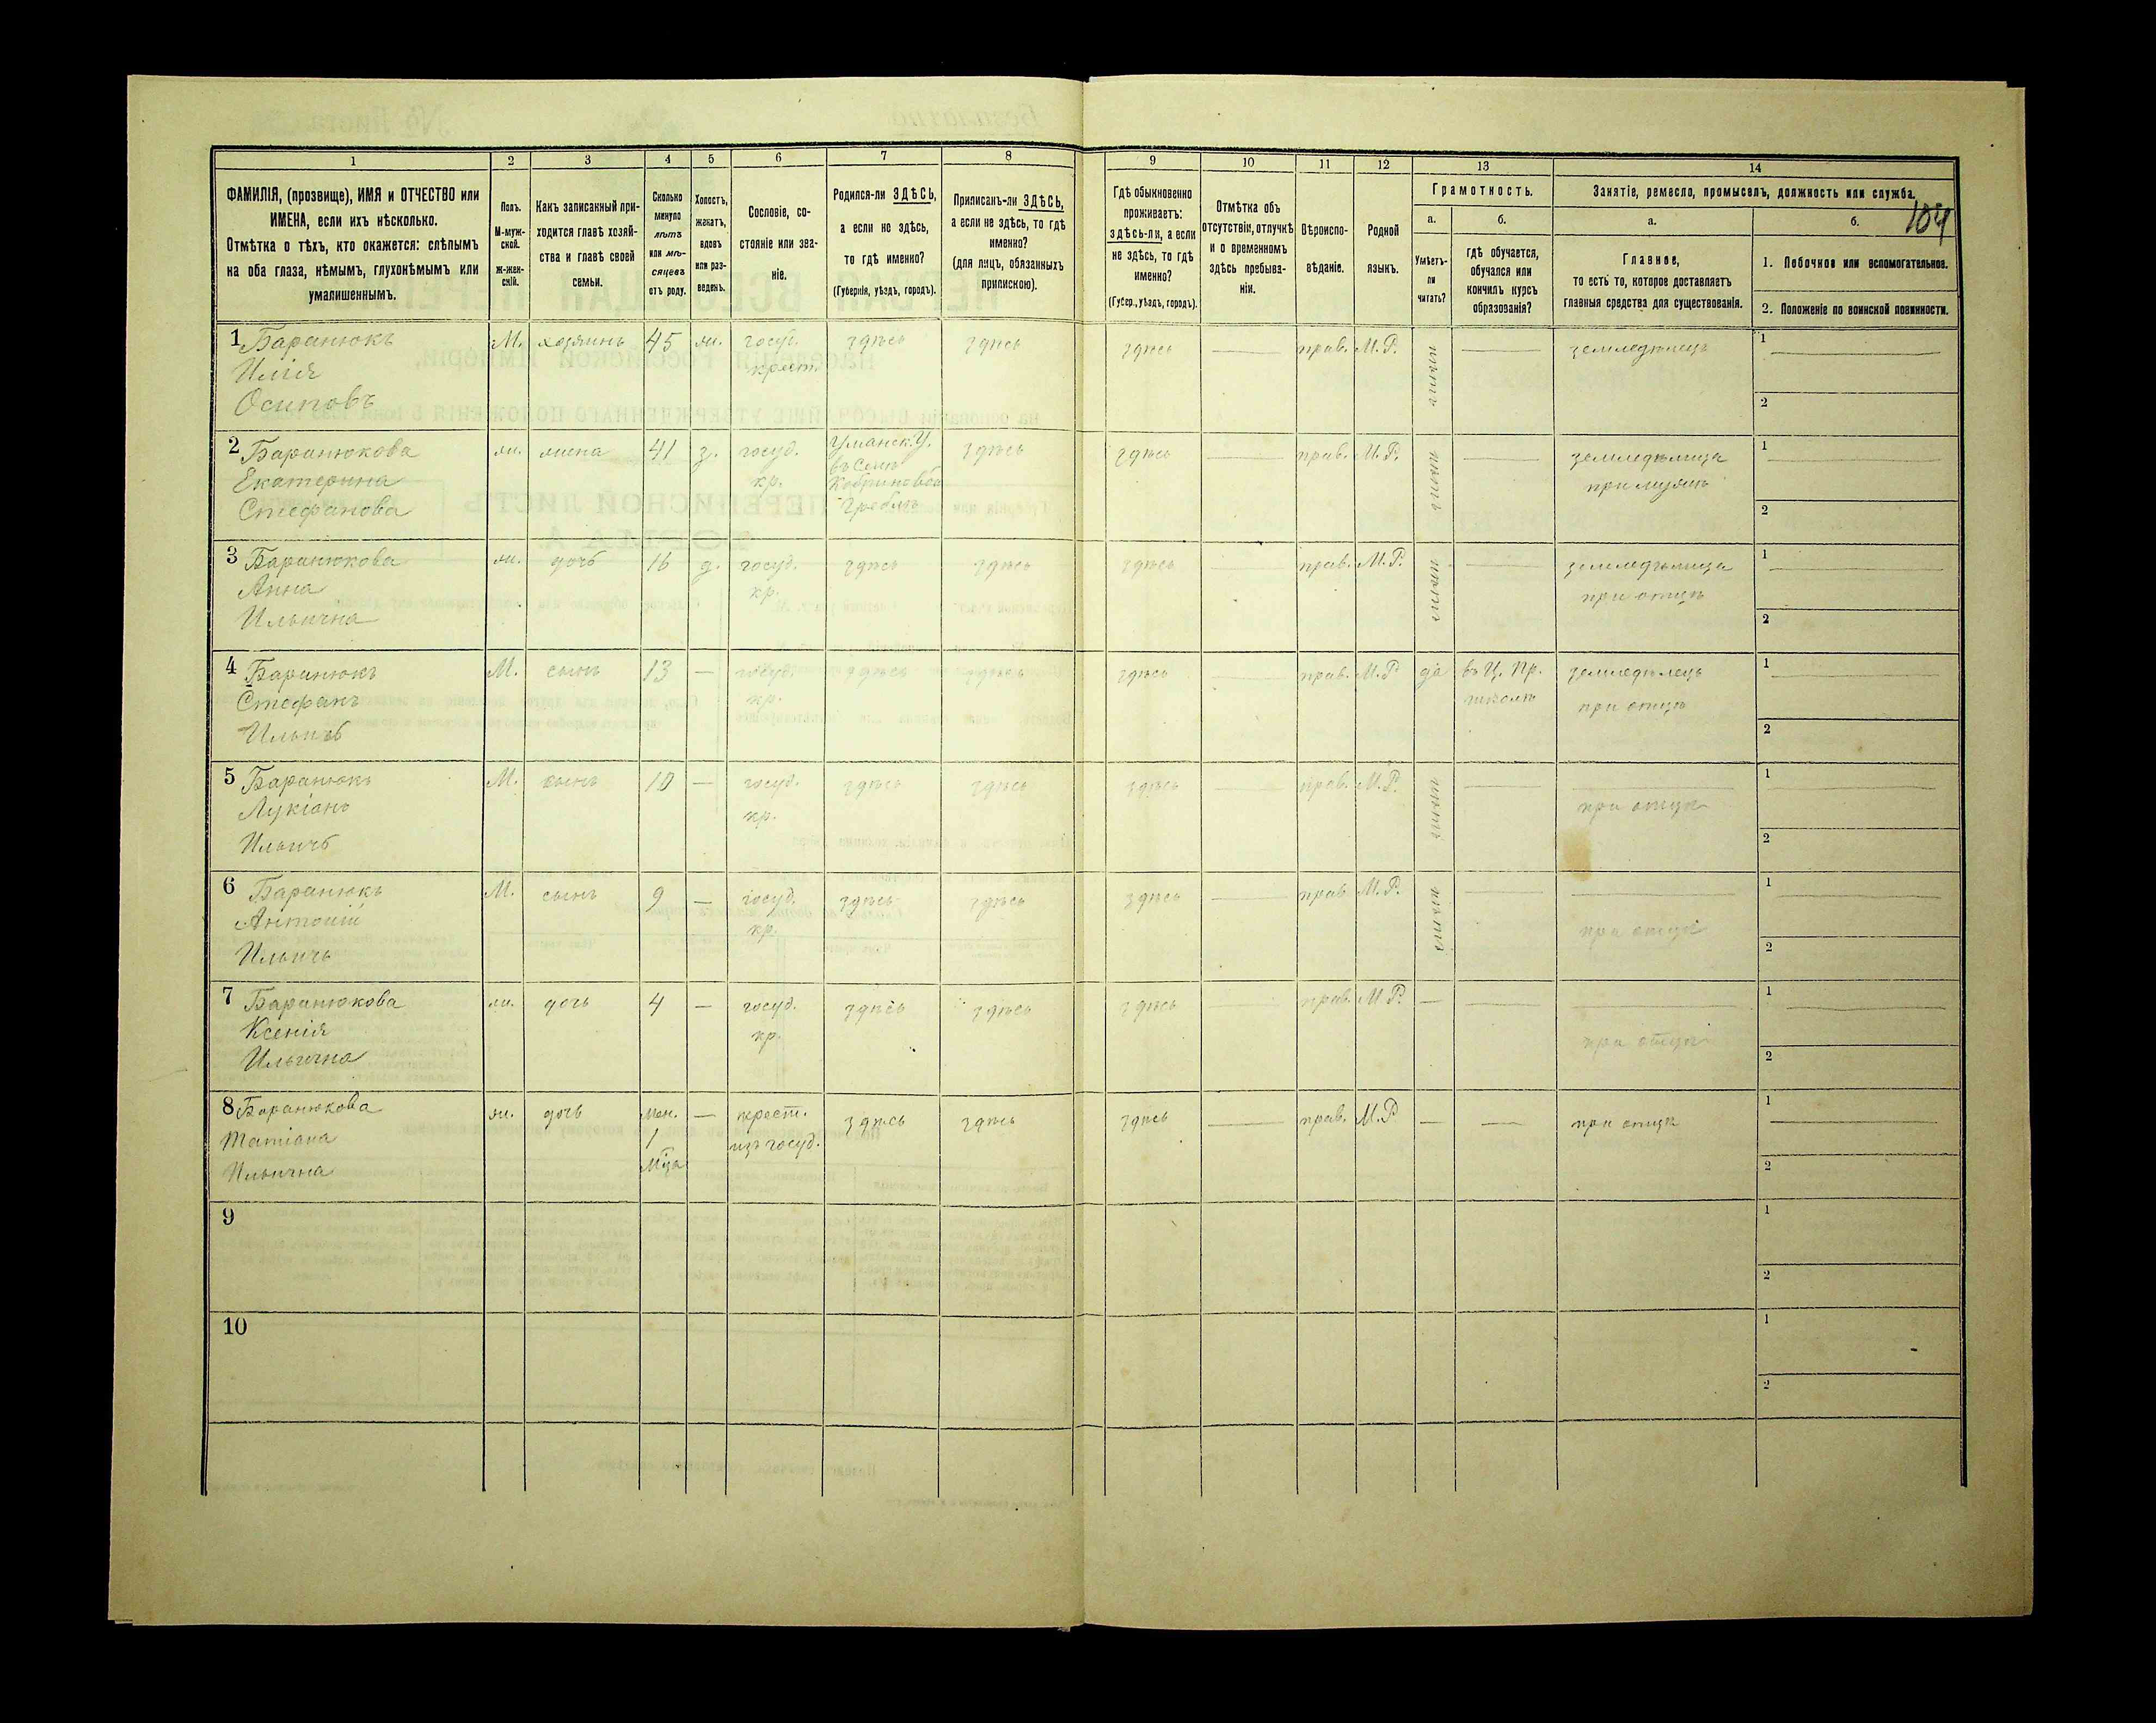 104
1 2 3 4 5 6 7 8 9 10 11 12 13 14
ФАМИЛІЯ, (прозвище), ИМЯ и ОТЧЕСТВО или
ИМЕНА, если ихъ нѣсколько.
Отмѣтка о тѣхъ, кто окажется: слѣпымъ
на оба глаза, нѣмымъ, глухонѣмымъ или
умалишеннымъ.
Полъ.
М-муж-
ской.
Ж-жен-
скій.
Какъ записанный при-
ходится главѣ хозяй-
ства и главѣ своей
семьи.
Сколько
минуло
лѣтъ
или мѣ-
сяцевъ
отъ роду.
Холостъ,
женатъ,
вдовъ
или раз-
веденъ.
Сословіе, со-
стояніе или зва-
ніе.
Родился-ли ЗДѢСЬ,
а если не здѣсь,
то гдѣ именно?
(Губернія, уѣздъ, городъ).
Приписанъ-ли ЗДѢСЬ,
а если не здѣсь, то гдѣ
именно?
(для лицъ, обязанныхъ
припискою).
Гдѣ обыкновенно
проживаетъ:
здѣсь-ли, а если
не здѣсь, то гдѣ
именно?
(Губер., уѣздъ, городъ).
Отмѣтка объ
отсутствіи, отлучкѣ
и о временномъ
здѣсь пребыва-
ніи.
Вѣроиспо-
вѣданіе.
Родной
языкъ.
Грамотность.
а.
Умѣетъ-
ли
читать?
б.
гдѣ обучается,
обучался или
кончилъ курсъ
образованія?
Занятіе, ремесло, промыселъ, должность или служба.
а.
Главное,
то есть то, которое доставляетъ
главныя средства для существованія.
б.
1. Побочное или вспомогательное.
2. Положеніе по воинской повинности.
1 Баранюкъ М. хозяинъ 45 ж. госуд. здѣсь здѣсь здѣсь — прав. М.Р. — земледѣлецъ 1 —
Илія крест.
Осиповъ 2
2 Баранюкова ж. жена 41 з. госуд. Уманск. У. здѣсь здѣсь — прав. М.Р. — земледѣлица 1 —
Екатерина кр. въ селѣ при мужѣ
Стефанова 2
3 Баранюкова ж. дочь 16 д. госуд. здѣсь здѣсь здѣсь — прав. М.Р. — земледѣлица 1 —
Анна кр. при отцѣ
Ильична 2
4 Баранюкъ М. сынъ 13 — госуд. здѣсь здѣсь здѣсь — прав. М.Р. да въ Ц. Пр. земледѣлецъ 1 —
Стефанъ кр. школѣ при отцѣ
Ильичъ 2
5 Баранюкъ М. сынъ 10 — госуд. здѣсь здѣсь здѣсь — прав. М.Р. — — 1 —
Лукіанъ кр. при отцѣ
Ильичъ 2
6 Баранюкъ М. сынъ 9 — госуд. здѣсь здѣсь здѣсь — прав М.Р. — — 1 —
Антоній кр. при отцѣ
Ильичъ 2
7 Баранюкова ж. дочь 4 — госуд. здѣсь здѣсь здѣсь — прав. М.Р. — — — 1 —
Ксенія кр. при отцѣ
Ильична 2
8 Баранюкова ж. дочь мен. — крест. здѣсь здѣсь здѣсь — прав. М.Р — — при отцѣ 1 —
Татіана 1 изъ госуд.
Ильична м-ца 2
9 1
2
10 1
2